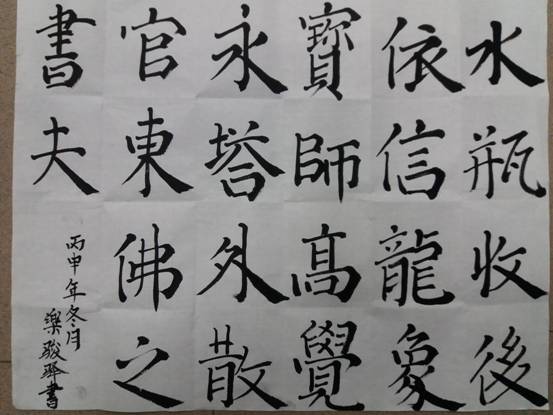 水瓶收後
依信龍象
寶師髙覺
永塔外散
官東佛之
書夫
丙申年冬月
樂駿書